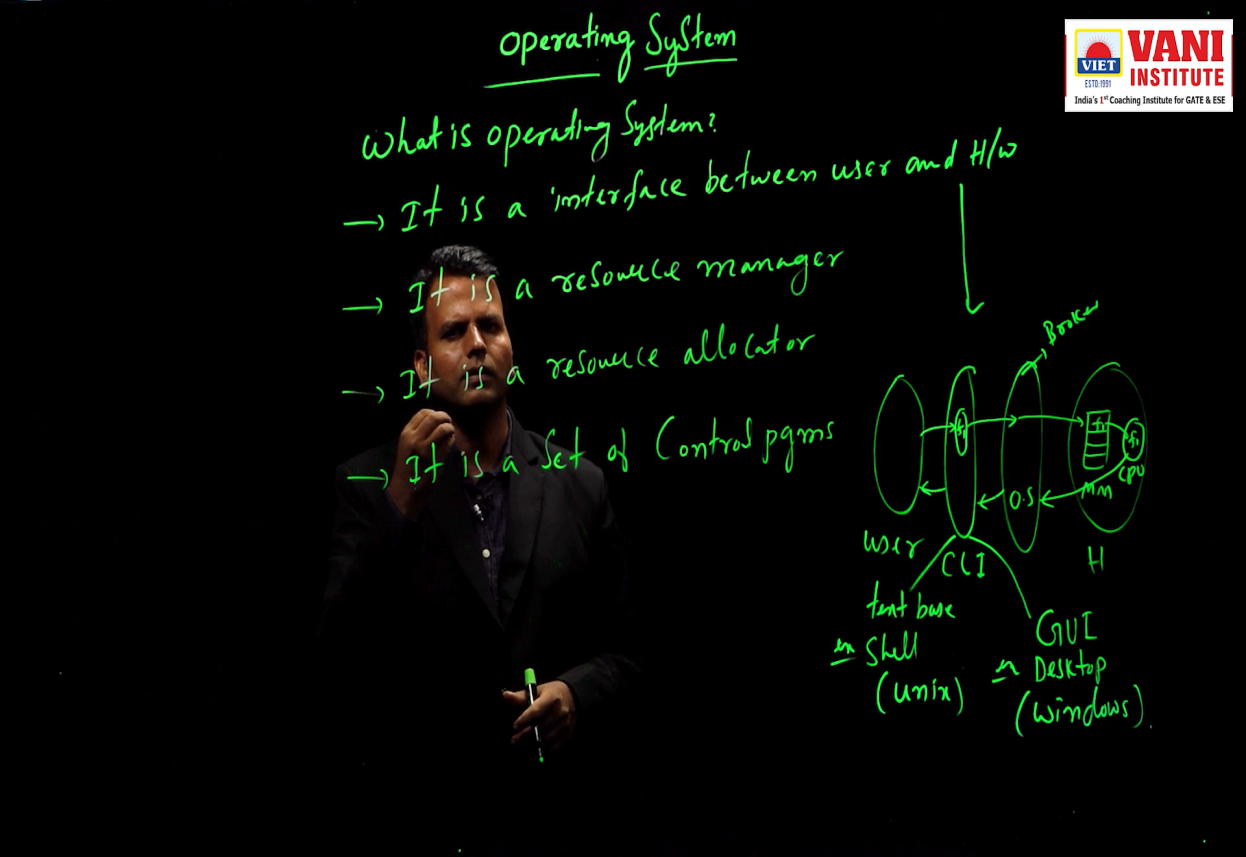 Operating System
VIET
ESTD:1991
VANI
INSTITUTE
India's 1st Coaching Institute for GATE & ESE
What is operating System?
→ It is a interface between user and H/W
→ It is a resource manager
→ It is a resource allocator
→ It is a set of Control pgms
Broker
f1
f1
f1
CPU
MM
O.S
user
CLI
H
text base
ex Shell
(Unix)
GUI
ex Desktop
(Windows).